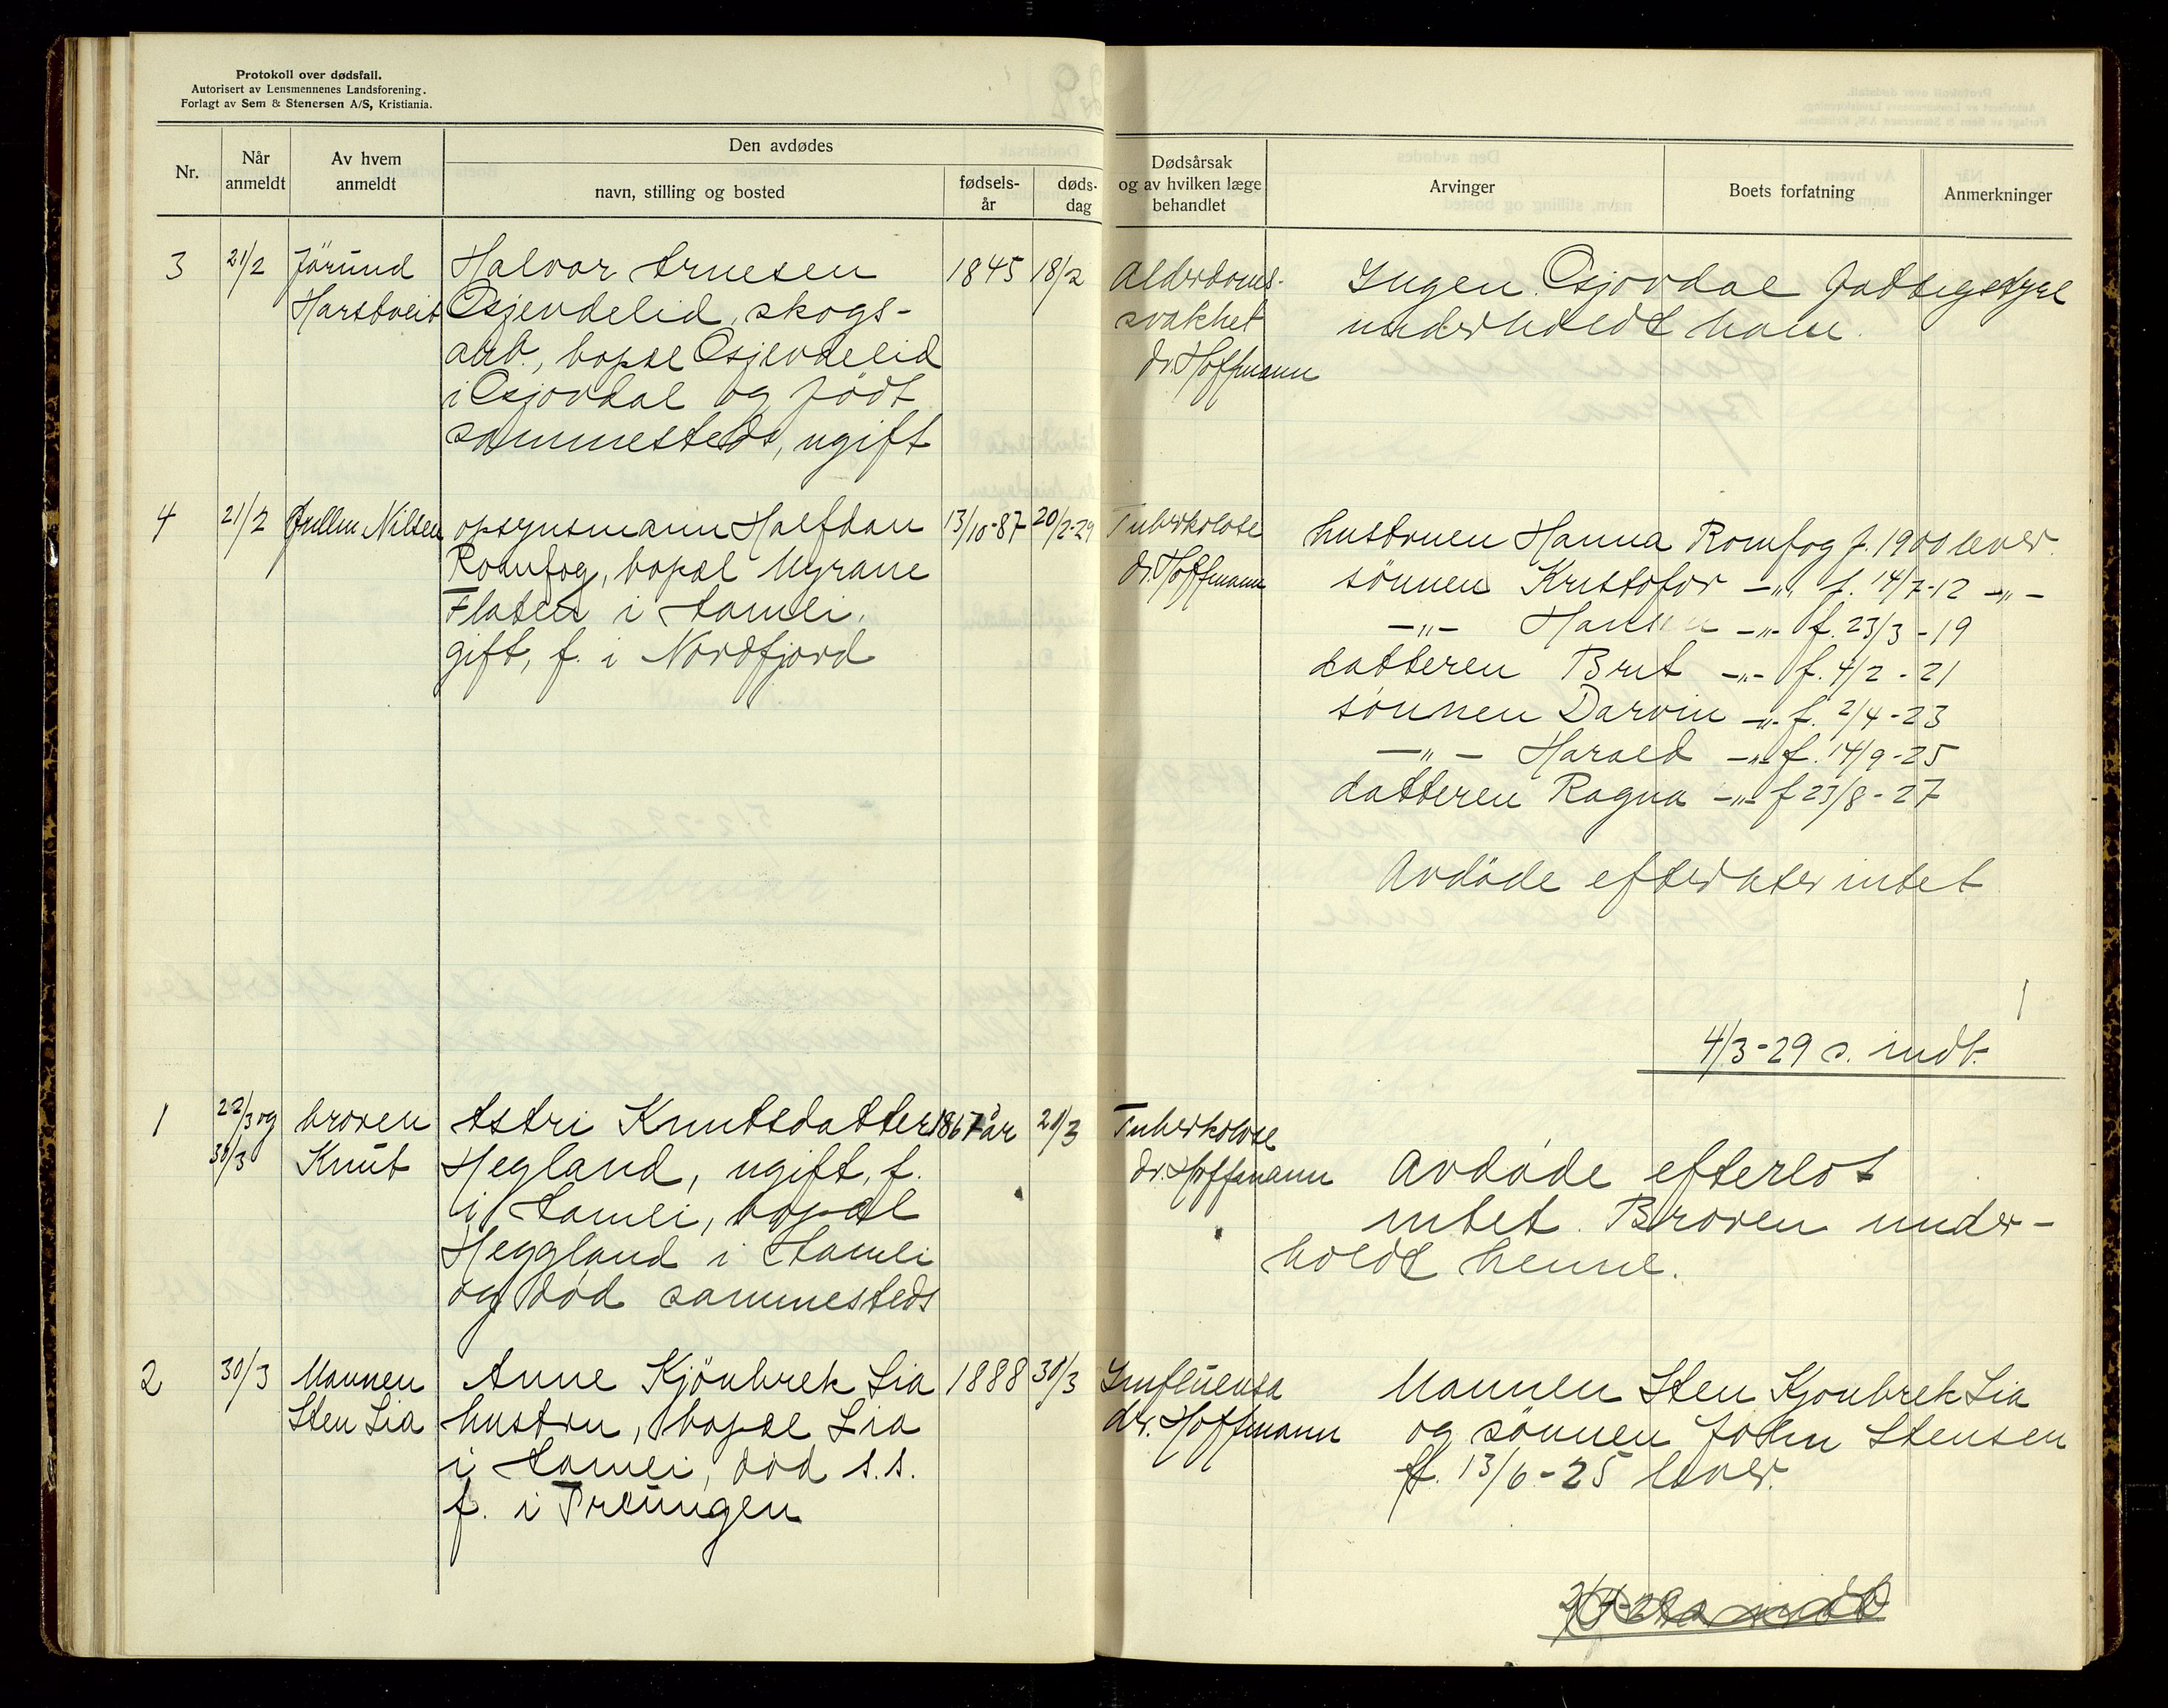 Protokoll over dødsfall.
Autorisert av Lensmennenes Landsforening.
Forlagt av Sem & Stenersen A/S, Kristiania.
Nr.
Når anmeldt
Av hvem anmeldt
Den avdødes
navn, stilling og bosted
fødsels-år
døds-dag
Dødsårsak og av hvilken læge behandlet
Arvinger
Boets forfatning
Anmerkninger
3 21/2 Jörund Halvor Arnesen 1845 18/2 Alderdoms- Ingen. Gjövdal fattigstyre
Harstveit Gjevdelid, skogs- svakhet underholdt ham.
arb., bopæl Gjevdelid dr. Hoffmann
i Gjövdal og född
sammesteds, ugift
4 21/2 Nilsen opsynsmann Halfdan 13/10-87 20/2-29 Tuberkolose hustruen Hanna Romfog f. 1900 lever.
Romfog, bopæl Myrane dr. Hoffmann sönnen Kristofor -„- f. 14/7-12 -„-
Flaten i Aamli. -„- -„- f. 23/3-19
gift, f. i Nordfjord datteren Brit -„- f. 4/2-21
sönnen Darvin -„- f. 2/4-23
-„- Harald -„- f. 14/9-25
datteren Ragna -„- f 23/8-27
Avdöde efterlater intet
4/3-29 s. indb.
1 22/3 og broren Astri Knutsdatter 1867 år 21/3 Tuberkolose
30/3 Knut Hegland, ugift, f. dr. Hoffmann Avdöde efterlot
i Aamli, bopæl intet. Broren under-
Heggland i Aamli holdt henne.
og död sammesteds
2 30/3 Mannen Anne Kjönbrek Lia 1888 30/3 Influensa Mannen Sten Kjönbrek Lia
Sten Lia hustru, bopæl Lia dr. Hoffmann og sönnen John Stensen
i Aamli, död s.s. f. 13/6-25 lever.
f. i Treungen